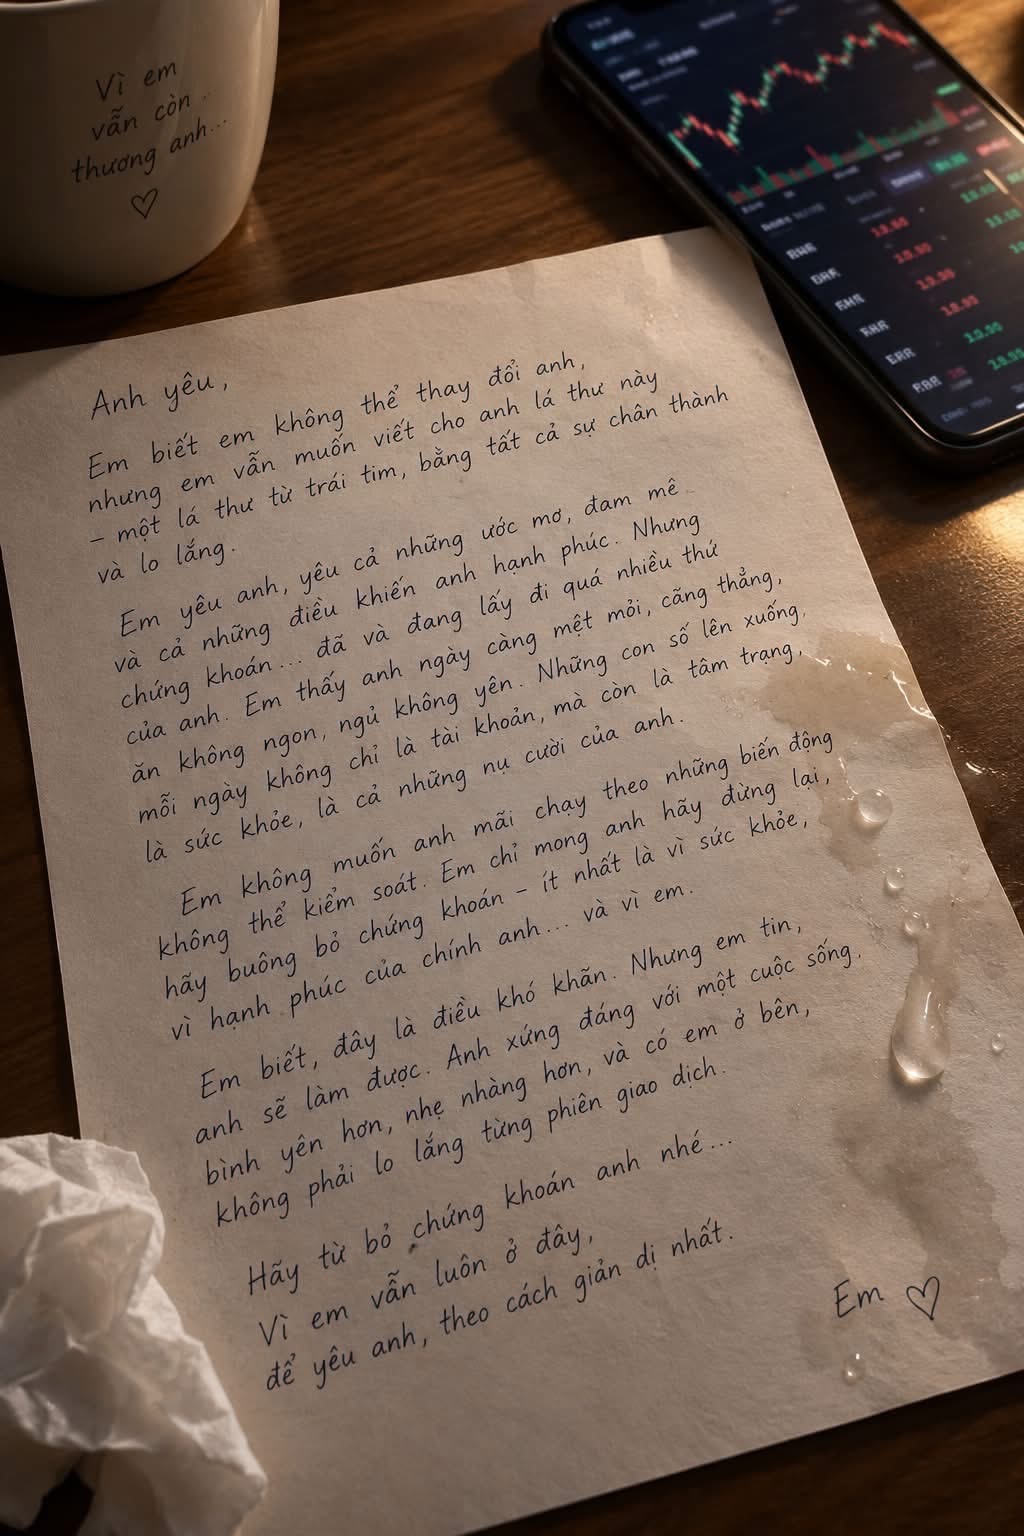 Vì em
vẫn còn..
thương anh...
Anh yêu,
Em biết em không thể thay đổi anh,
nhưng em vẫn muốn viết cho anh lá thư này
– một lá thư từ trái tim, bằng tất cả sự chân thành
và lo lắng.
Em yêu anh, yêu cả những ước mơ, đam mê
và cả những điều khiến anh hạnh phúc. Nhưng
chứng khoán... đã và đang lấy đi quá nhiều thứ
của anh. Em thấy anh ngày càng mệt mỏi, căng thẳng,
ăn không ngon, ngủ không yên. Những con số lên xuống
mỗi ngày không chỉ là tài khoản, mà còn là tâm trạng,
là sức khỏe, là cả những nụ cười của anh.
Em không muốn anh mãi chạy theo những biến động
không thể kiểm soát. Em chỉ mong anh hãy dừng lại,
hãy buông bỏ chứng khoán – ít nhất là vì sức khỏe,
vì hạnh phúc của chính anh... và vì em.
Em biết, đây là điều khó khăn. Nhưng em tin,
anh sẽ làm được. Anh xứng đáng với một cuộc sống
bình yên hơn, nhẹ nhàng hơn, và có em ở bên,
không phải lo lắng từng phiên giao dịch.
Hãy từ bỏ chứng khoán anh nhé...
Vì em vẫn luôn ở đây,
để yêu anh, theo cách giản dị nhất.
Em ♡